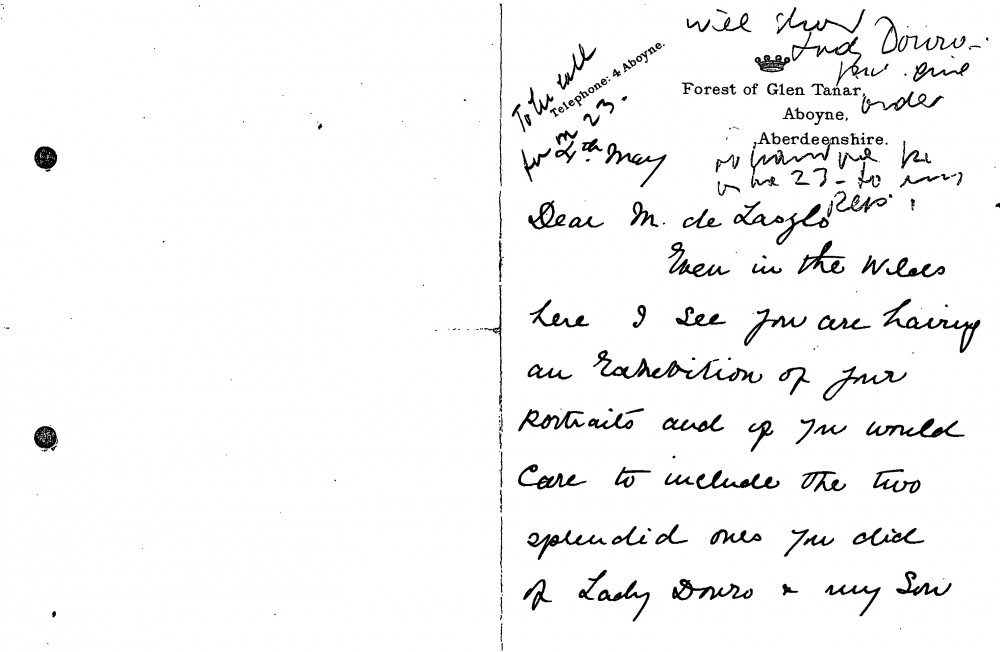 will show
Lady Douro -
order
Telephone: 4 Aboyne.
Forest of Glen Tanar,
Aboyne,
Aberdeenshire.
To be call
for on 23.
4th May
23 - to
Dear M. de Laszlo
Even in the Wilds
here I see you are having
an Exhibition of your
Portraits and if you would
Care to include the two
splendid ones you did
of Lady Douro & my Son